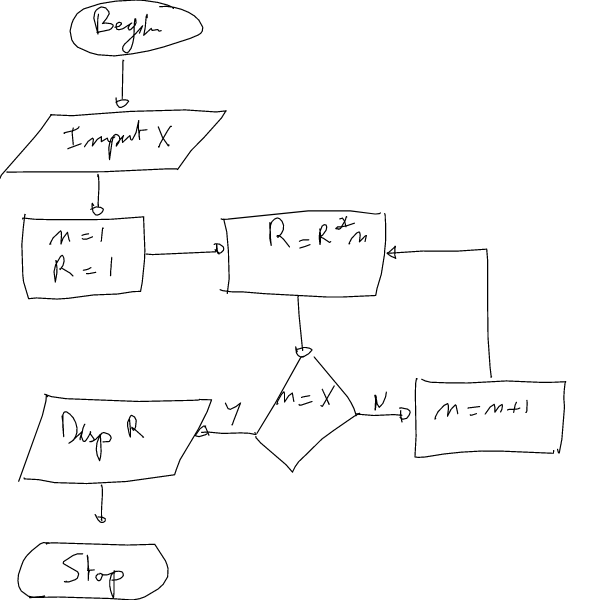 Begin
Input X
n = 1
R = 1
R = R * n
n = X
Y
N
n = n+1
Disp R
Stop